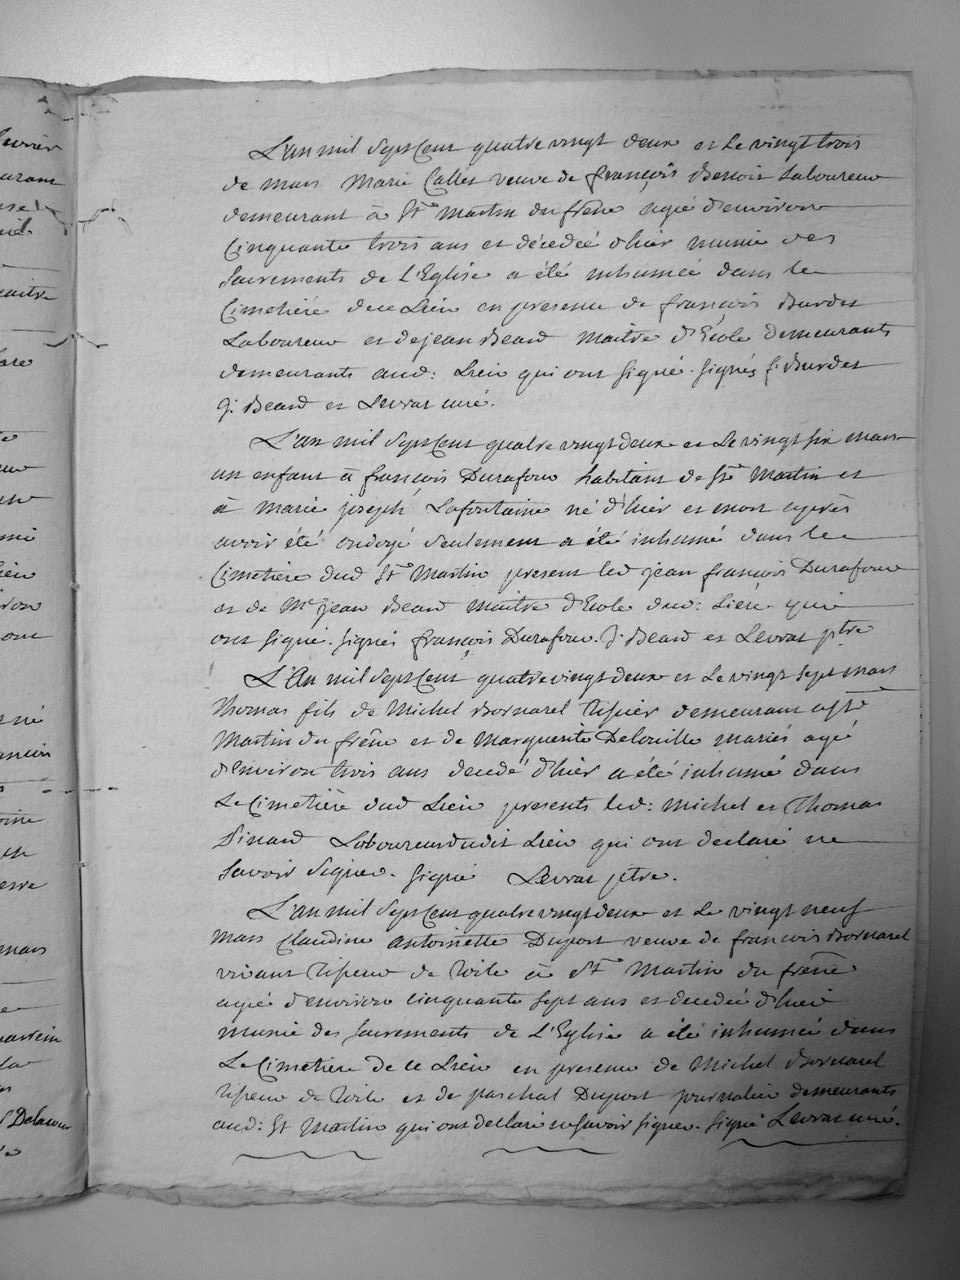 L'an mil Sept Cent quatre vingt deux et le vingt trois
de mars Marie Callet veuve de françois Benoit Laboureur
demeurant à St. Martin du frêne agée d'environ
Cinquante trois ans et décédeé d'hier munie des
Sacrements de L'Eglise a été inhumeé dans le
Cimetiére de ce Lieu en presence de françois Burdet
Laboureur et de jean Beard Maitre d'Ecole demeurants
demeurants aud: Lieu qui ont signé. signés f: Burdet
J: Beard et Levrat curé.
L'an mil Sept Cent quatre vingt deux et Le vingt six mars
un enfant à françois Durafour habitant de St. Martin et
à marie joseph Lafontaine né d'hier et mort après
avoir été ondoyé seulement a été inhumé dans le
Cimetière dud St. Martin present led jean françois Durafour
et de Mr. jean Beard Maitre d'Ecole dud: Lieu qui
ont signé. signés françois Durafour. J: Beard et Levrat ptre
L'An mil Sept Cent quatre vingt deux et Le vingt Sept mars
Thomas fils de Michel Bornarel Tissier demeurant à St.
Martin du frêne et de Marguerite Delouille mariés agé
d'environ trois ans decedé d'hier a été inhumé dans
Le Cimetière dud Lieu presents led: Michel et Thomas
Pinard Laboureur dudit Lieu qui ont declaré ne
savoir signer. Signé Levrat ptre.
L'an mil Sept Cent quatre vingt deux et Le vingt neuf
Mars Claudine Antoinette Duport veuve de françois Bornarel
vivant Tisseur de Toile à St. Martin du frêne
agée d'environ cinquante sept ans et decedeé d'hier
munie des Sacrements de L'Eglise a été inhumeé dans
Le Cimetière de ce Lieu en presence de Michel Bornarel
Tisseur de Toile et de paschal Duport journalier demeurants
aud: St Martin qui ont declaré ne savoir signer. Signé Levrat curé.